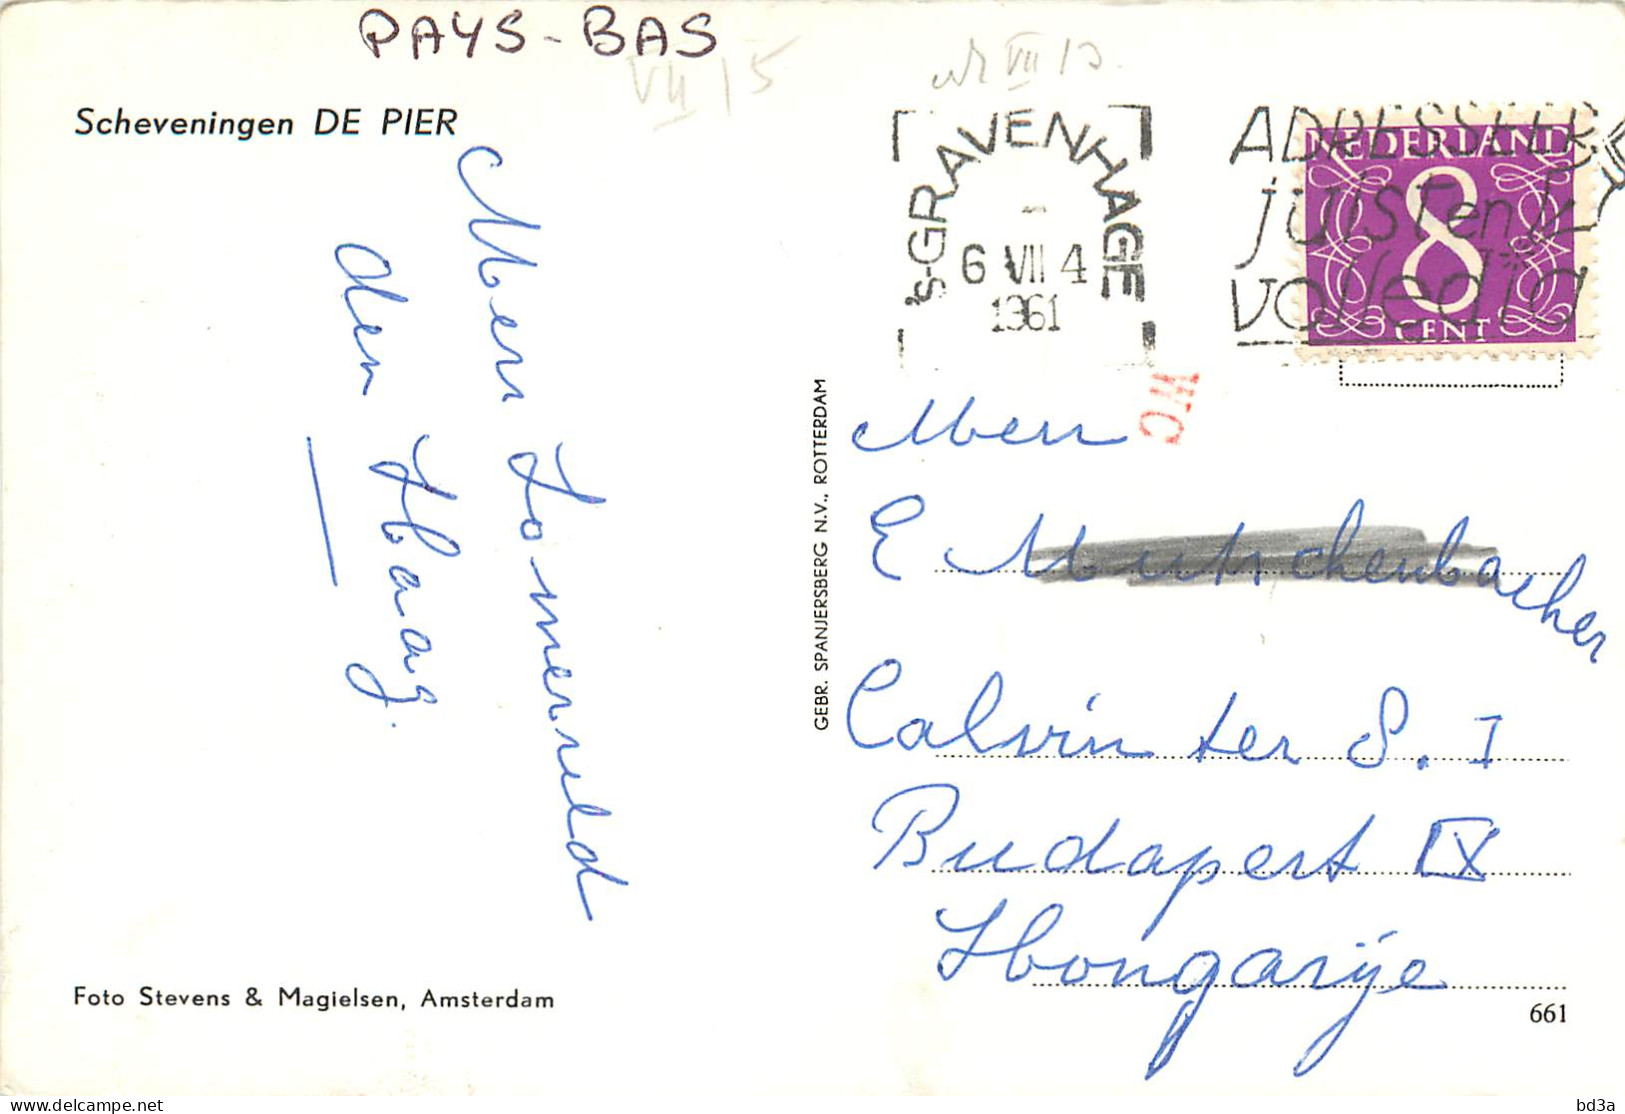 PAYS-BAS
VII 15
VII 13
Scheveningen DE PIER
Mevr Zomerveld
den Haag.
's-GRAVENHAGE
6 VII 4
1961
ADRESSEER
juist en
volledig
NEDERLAND
8
CENT
GEBR. SPANJERSBERG N.V., ROTTERDAM
Mevr
E Mutschenbacher
Calvin ter S. I
Budapest IX
Hongarije
Foto Stevens & Magielsen, Amsterdam
661
delcampe.net
bd3a